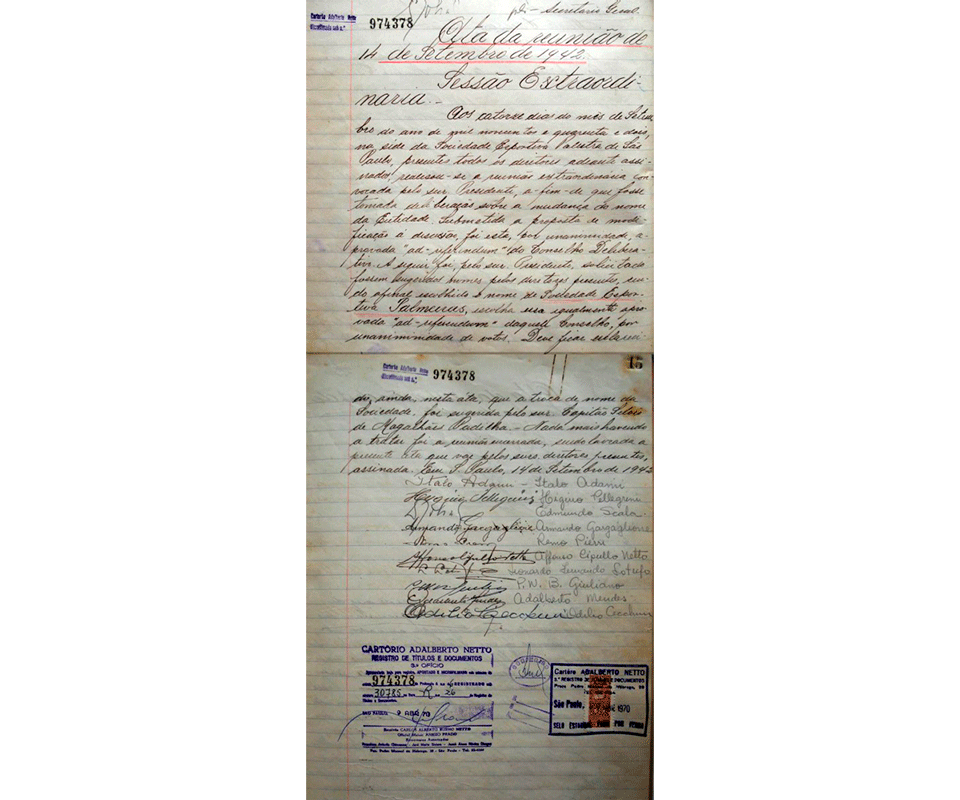 Cartório Adalberto Netto
974378
pdi - Secretario Geral
Ata da reunião de
14 de Setembro de 1942.
Sessão Extraordi-
naria.-
Aos catorze dias do mês de Setem-
bro do ano de mil novecentos e quarenta e dois,
na séde da Sociedade Esportiva Palestra de São
Paulo, presentes todos os diretores adeante assi-
nados, realisou-se a reunião extraordinária con-
vocada pelo snr. Presidente, a-fim-de que fosse
tomada deliberação sobre a mudança do nome
da Entidade. Submetida a proposta de modi-
ficação á discussão, foi esta, por unanimidade, a-
provada "ad-referendum" do Conselho Delibera-
tivo. A seguir foi, pelo snr. Presidente, solicitado
fossem sugeridos nomes pelos diretores presentes, sen-
do afinal escolhido o nome de Sociedade Espor-
tiva Palmeiras, escolha essa igualmente apro-
vada "ad-referendum" daquele Conselho, por
unanimidade de votos. Deve ficar esclareci-
15
Cartório Adalberto Netto
974378
do, ainda, nesta áta, que a troca de nome da
Sociedade, foi sugerida pelo snr. Capitão Silvio
de Magalhães Padilha. - Nada mais havendo
a tratar foi a reunião encerrada, sendo lavrada a
presente ata que vae pelos snrs. diretores presentes,
assinada. Em S. Paulo, 14 de Setembro de 1942
Italo Adami - Italo Adami
Higino Pellegrini Higino Pellegrini
Edmundo Scala
Armando Gargaglione Armando Gargaglione
Remo Pierri
Affonso Cipullo Netto Affonso Cipullo Netto
Leonardo Fernando Lotufo
P. W. B. Giuliano
Adalberto Mendes
Odilio Cecchini Odilio Cecchini
CARTÓRIO ADALBERTO NETTO
REGISTRO DE TÍTULOS E DOCUMENTOS
3.º OFÍCIO
974378
30785 R 26
SÃO PAULO, 9 ABR 70
Cartório ADALBERTO NETTO
3.º REGISTRO DE TÍTULOS E DOCUMENTOS
São Paulo, 1970
SELO ESTADUAL PAGO POR VERBA